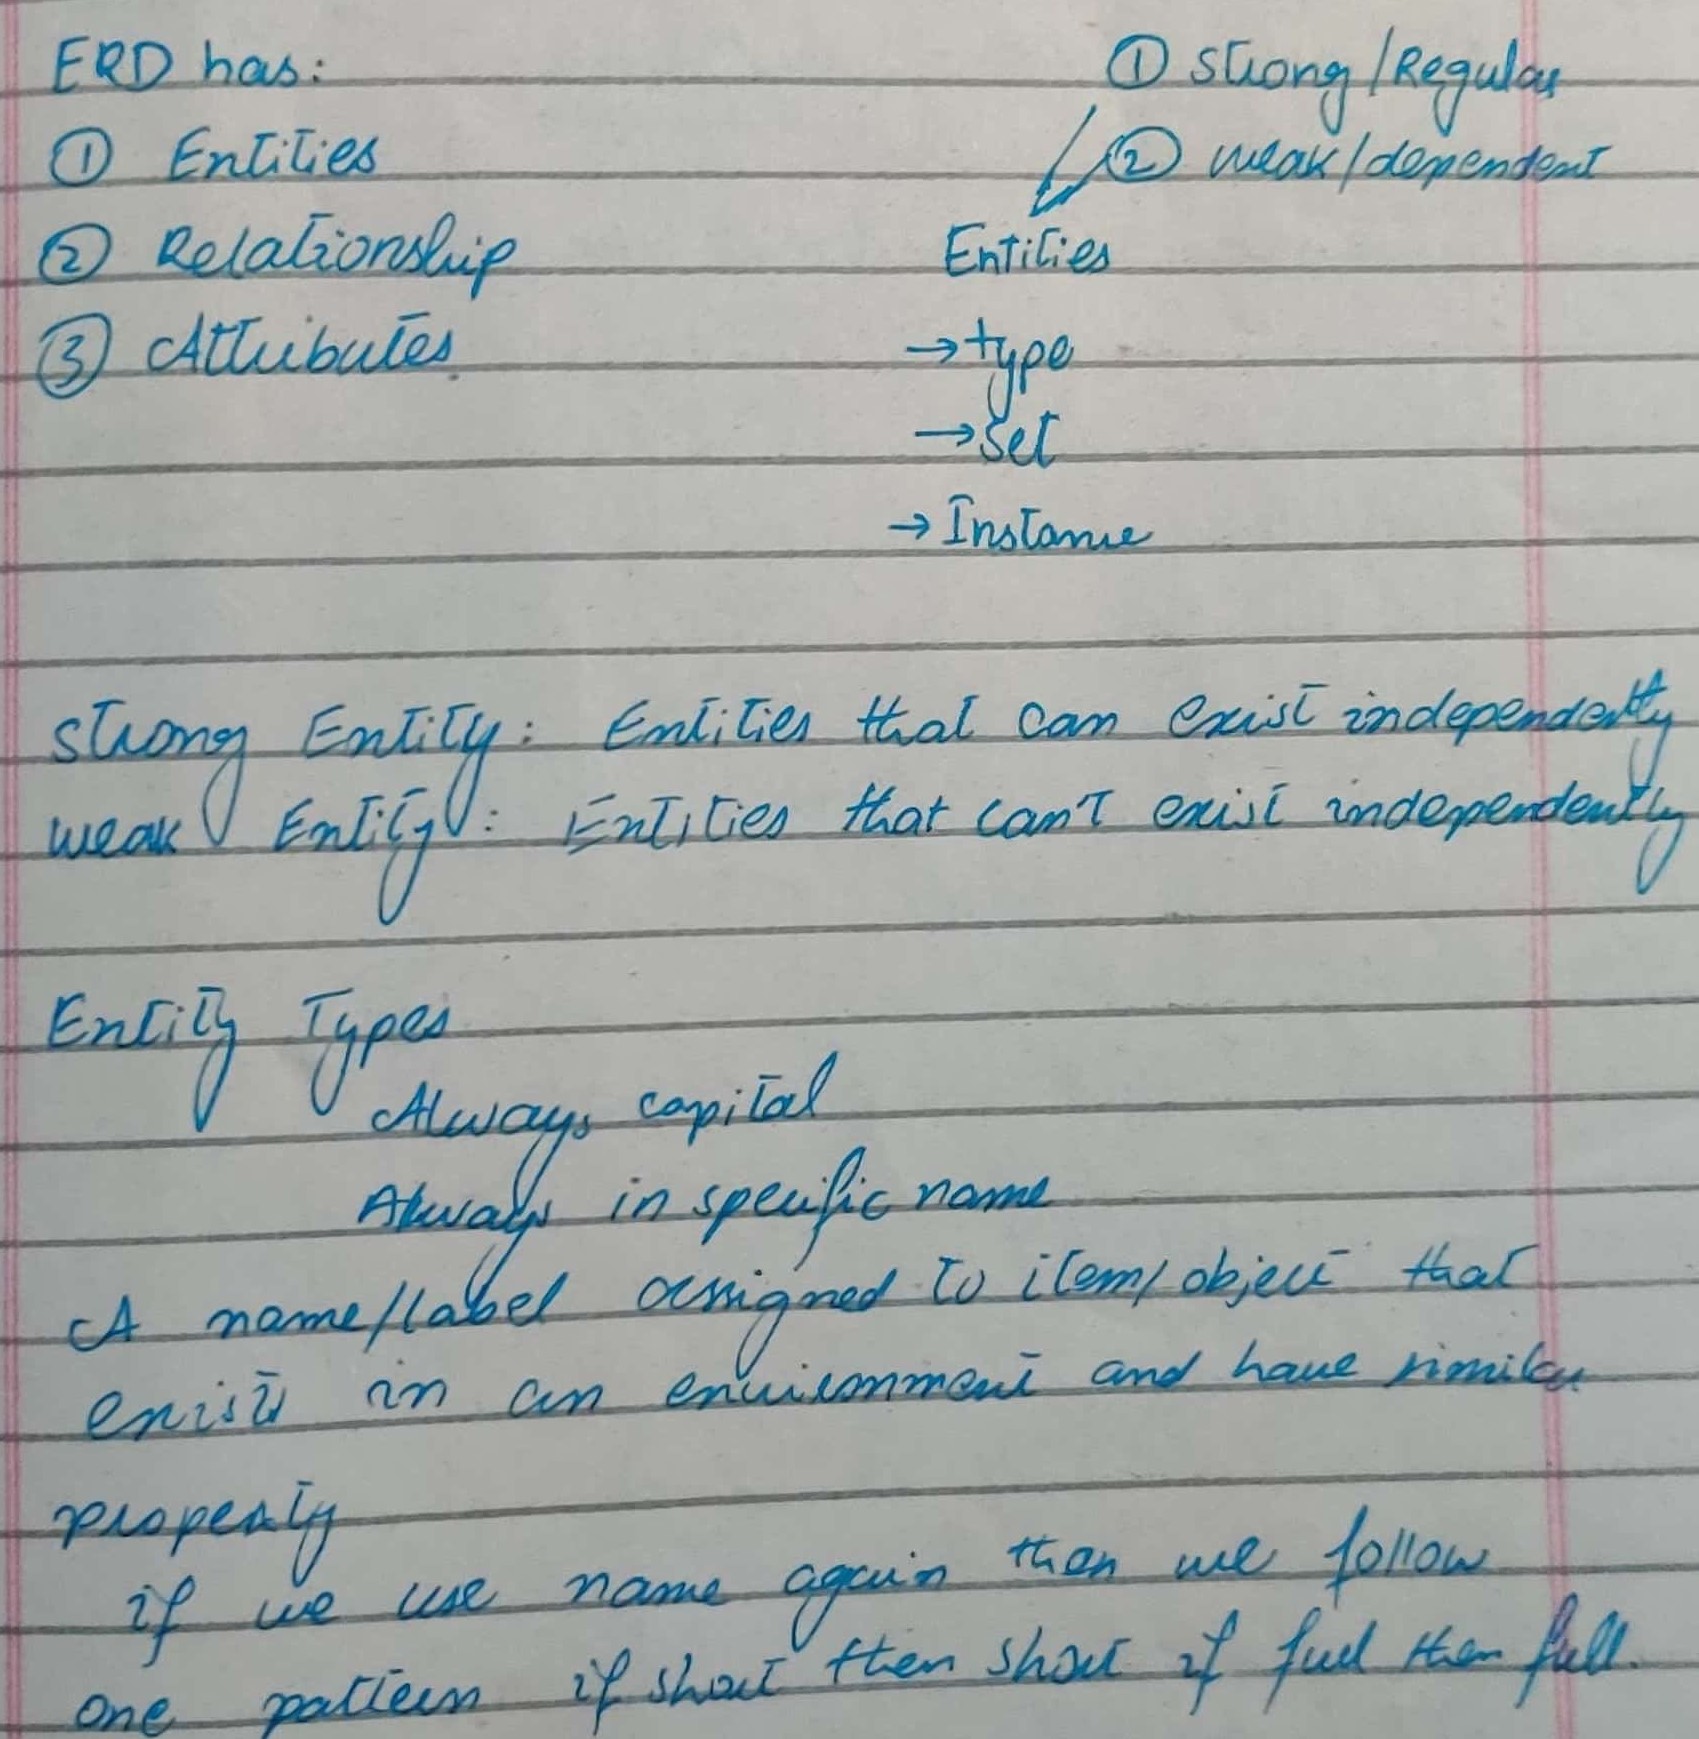 ERD has:
① Entities
② Relationship
③ Attributes
① strong/Regular
② weak/dependent
Entities
→ type
→ set
→ Instance
strong Entity: Entities that can exist independently
weak Entity: Entities that can't exist independently
Entity Types
Always capital
Always in specific name
A name/label assigned to item/object that
exists in an environment and have similar
property
if we use name again then we follow
one pattern if short then short if full then full.